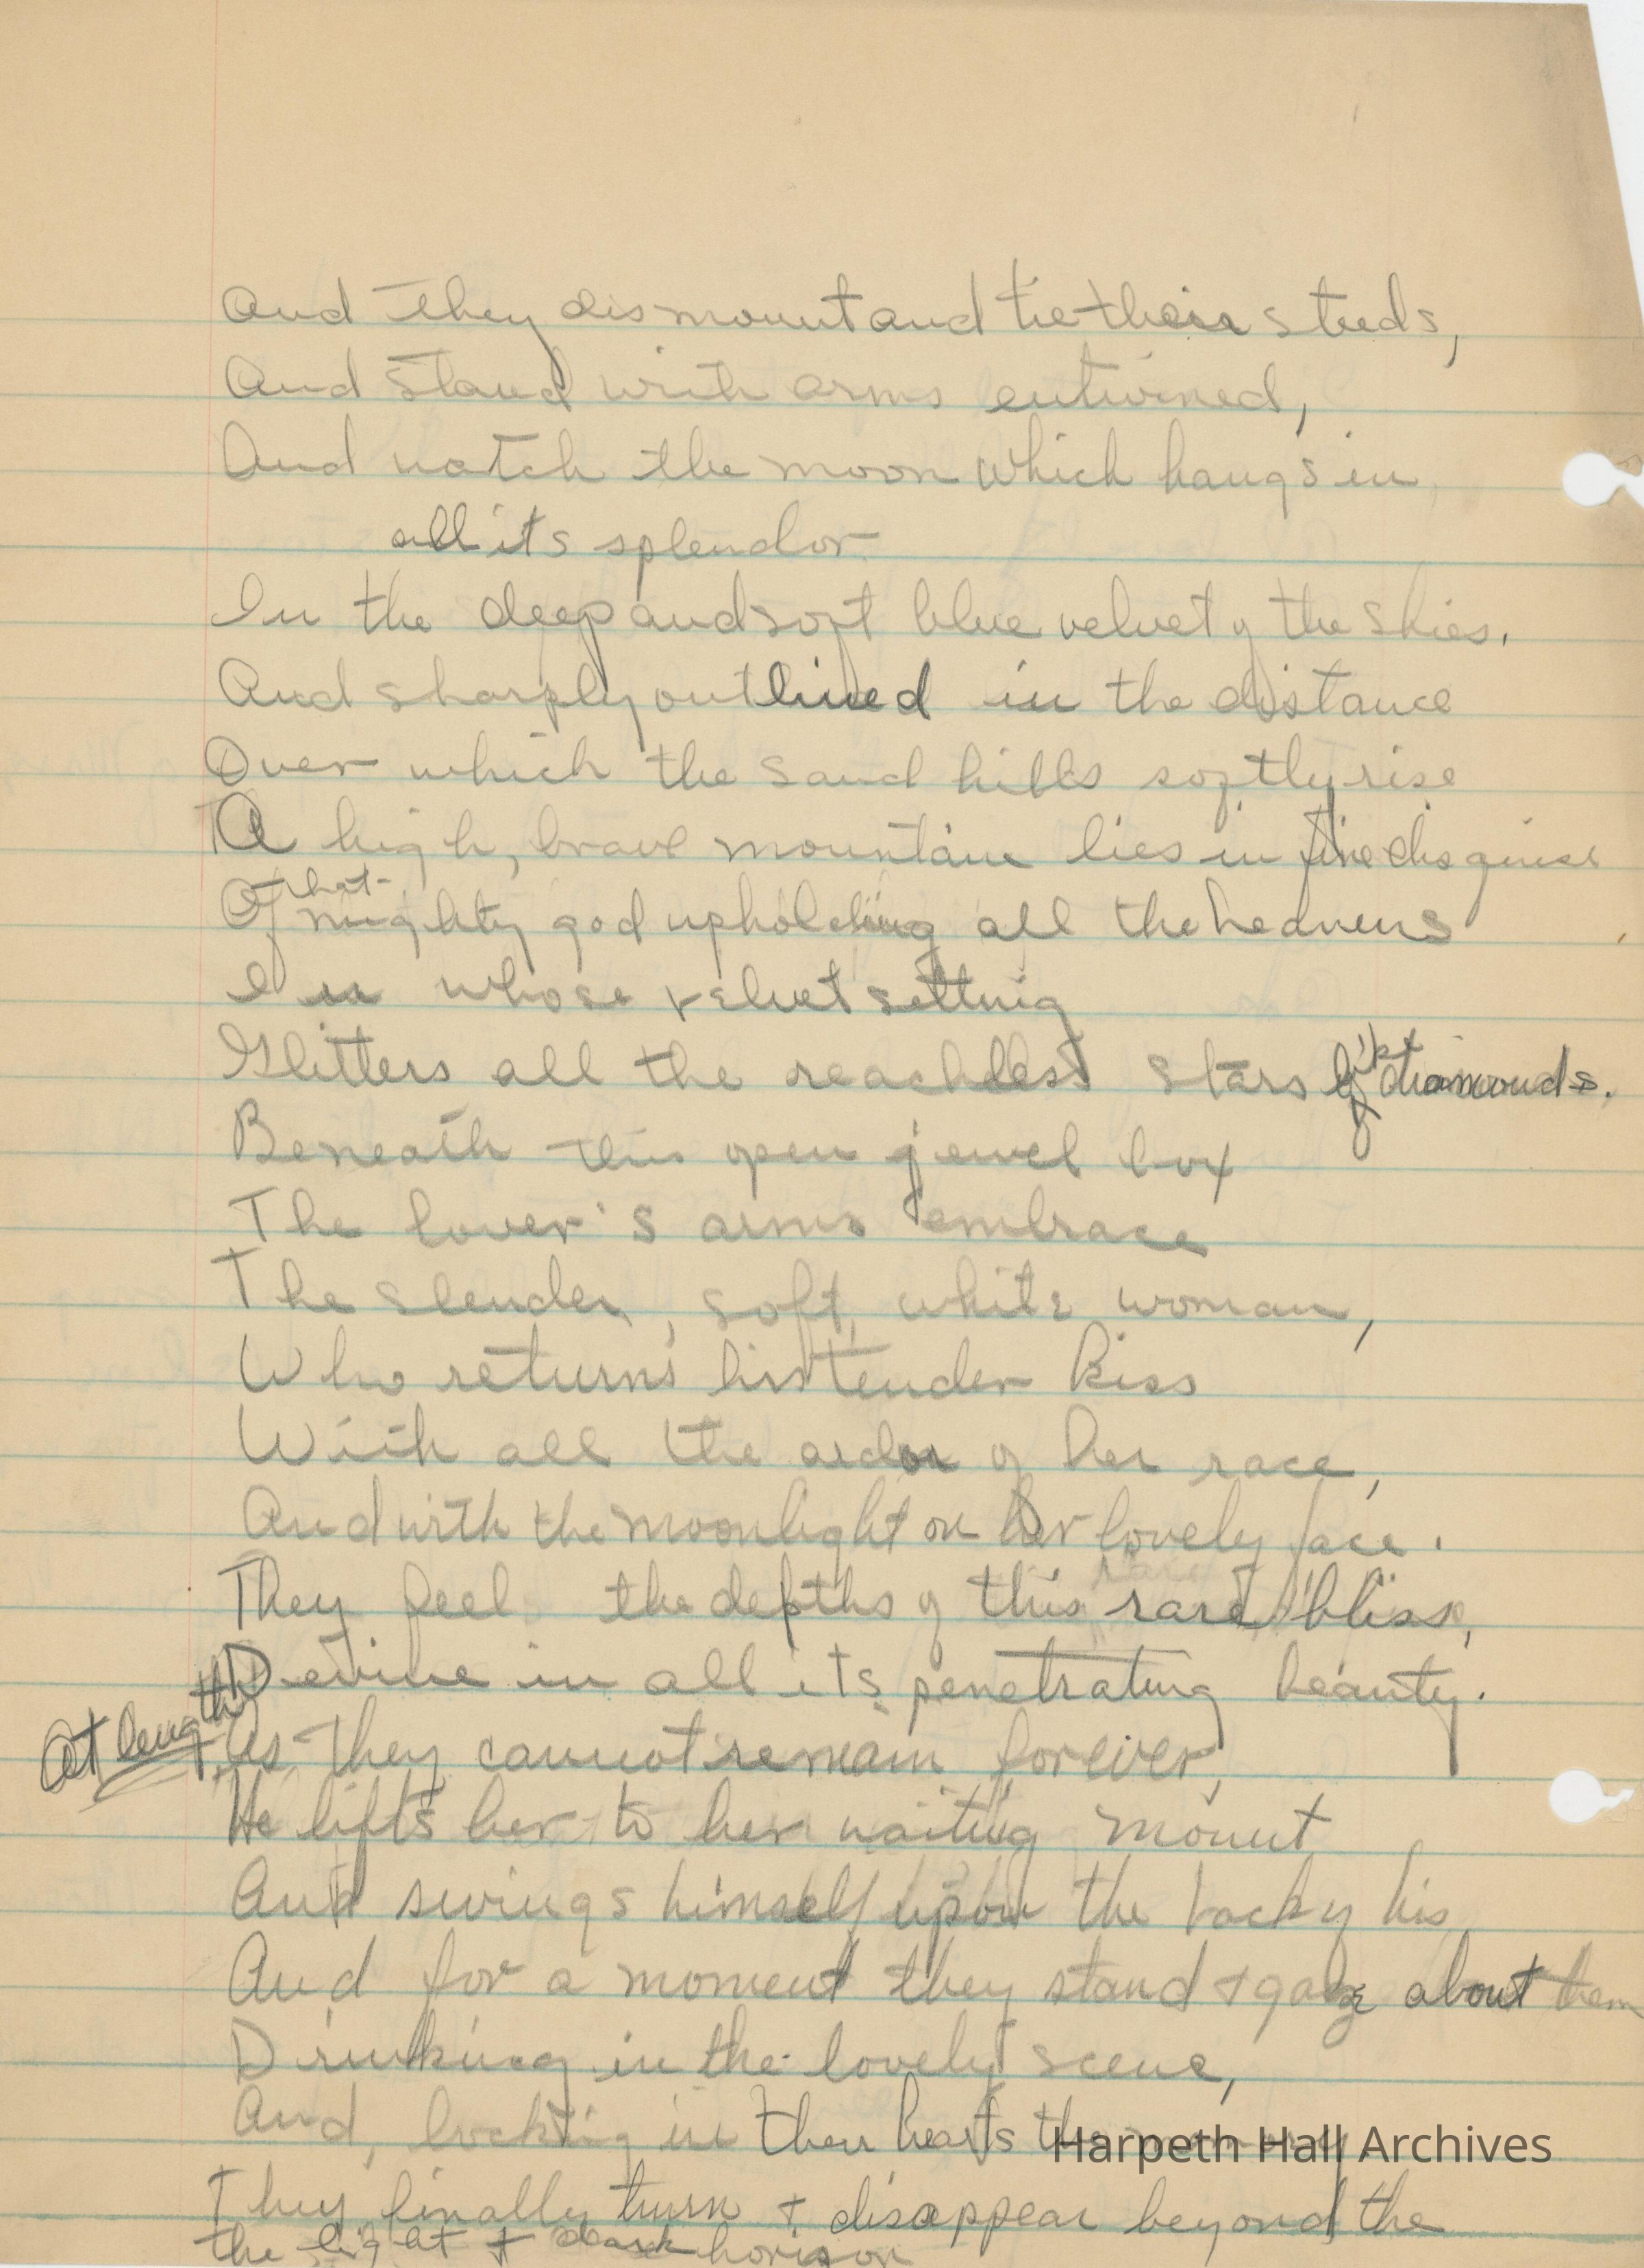 And they dismount and tie their steeds,
And stand with arms entwined,
And watch the moon which hangs in
all its splendor
In the deep and soft blue velvet of the skies.
And sharply outlined in the distance
Over which the sand hills softly rise
A high, brave mountain lies in fine disguise
Of that mighty god upholding all the heavens
In whose velvet setting
Glitters all the reachless stars like diamonds.
Beneath this open jewel box
The lover's arms embrace
The slender, soft, white woman,
Who returns his tender kiss
With all the ardor of her race,
And with the moonlight on her lovely face.
They feel the depths of this rare bliss,
Devine in all its penetrating beauty.
At length
As they cannot remain forever,
He lifts her to her waiting mount
And swings himself upon the back of his
And for a moment they stand + gaze about them
Drinking in the lovely scene,
And, locking in their hearts the
Harpeth Hall Archives
They finally turn + disappear beyond the
the light + dark horizon